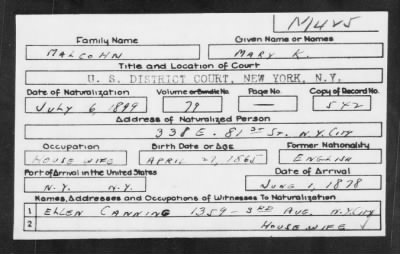 M425
Family Name Given Name or Names
MALCOHN MARY K.
Title and Location of Court
U. S. DISTRICT COURT, NEW YORK, N.Y.
Date of Naturalization Volume or Bundle No. Page No. Copy of Record No.
JULY 6 1899 79 — 542
Address of Naturalized Person
338 E. 81 ST ST. N.Y.CITY
Occupation Birth Date or Age Former Nationality
HOUSE WIFE APRIL 27, 1865 ENGLISH
Port of Arrival in the United States Date of Arrival
N.Y. N.Y. JUNE 1, 1878
Names, Addresses and Occupations of Witnesses To Naturalization
1 ELLEN CANNING 1359 - 3RD AVE. N.Y.CITY
2 HOUSE WIFE